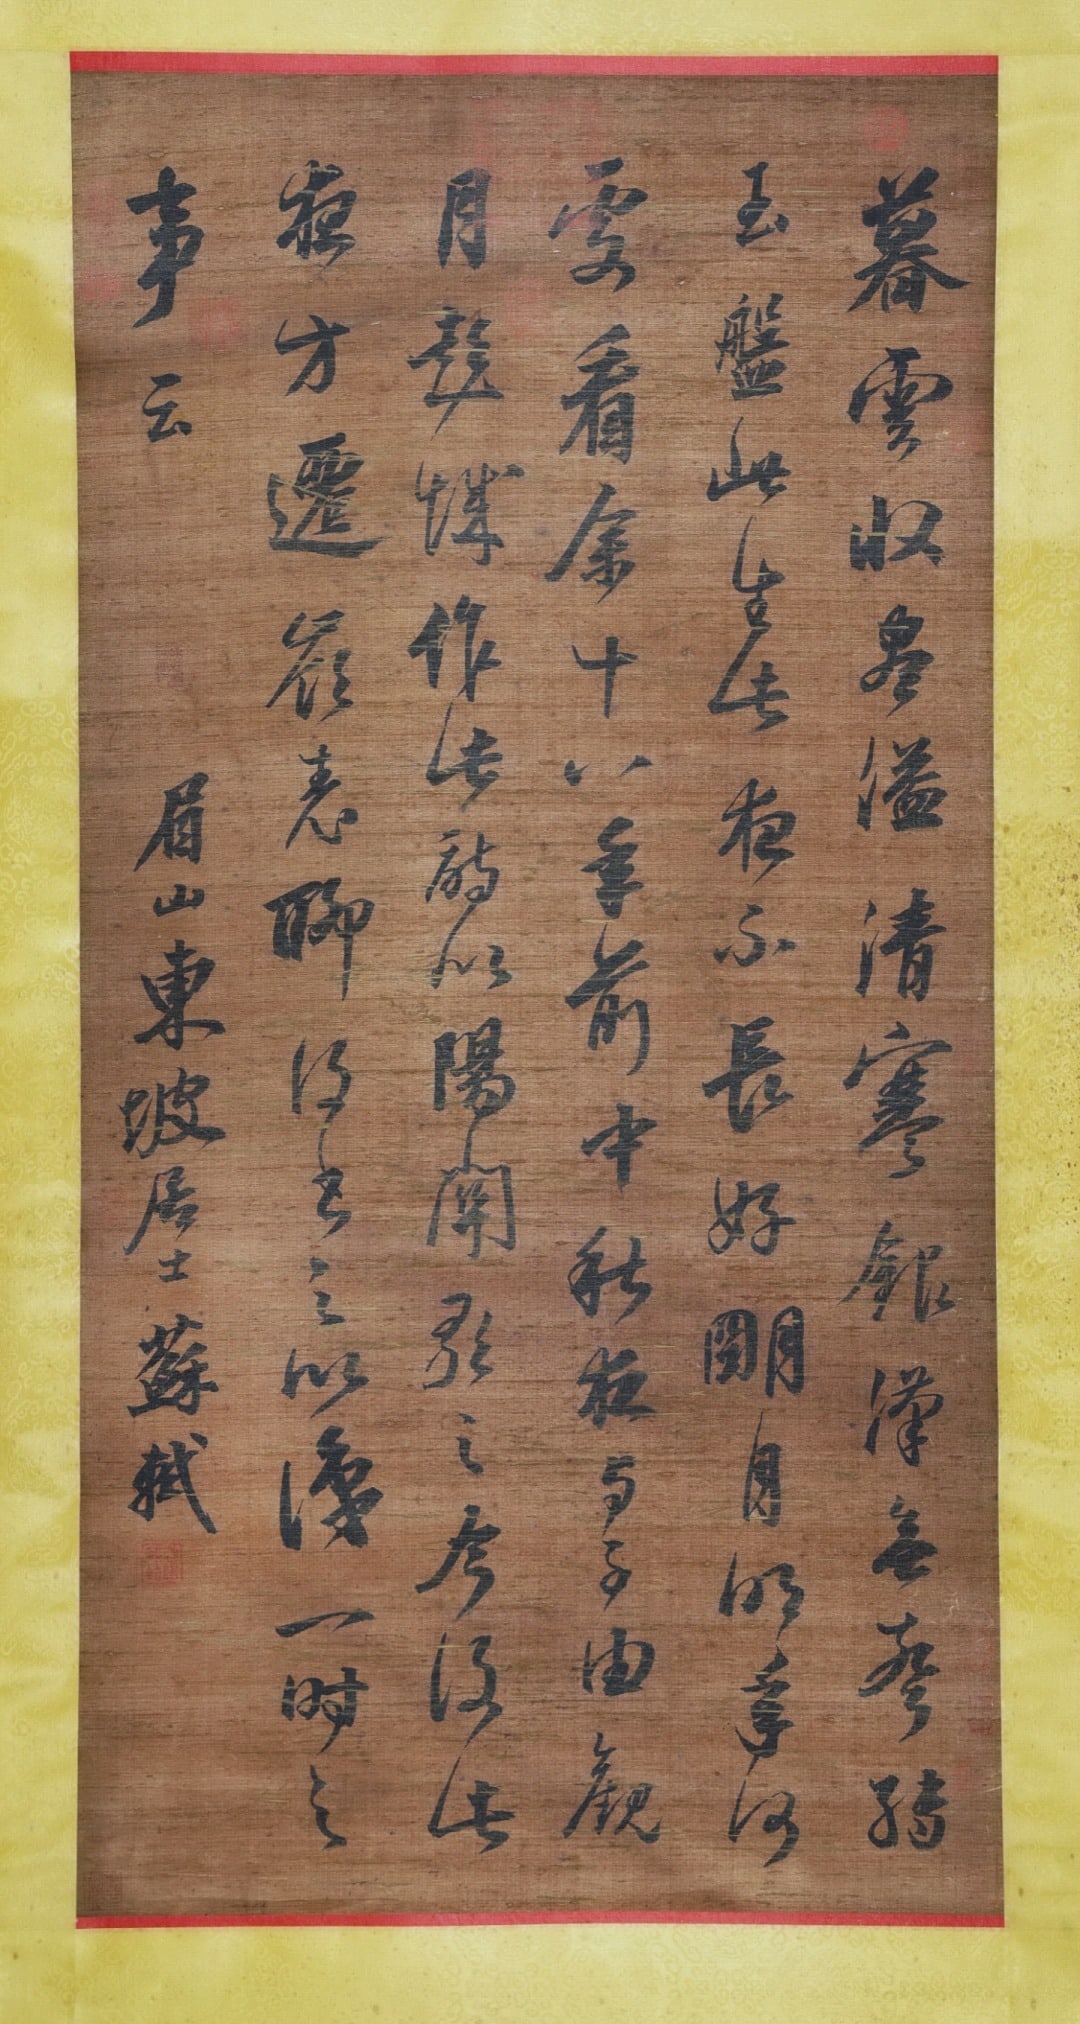 暮雲收盡溢清寒銀漢無聲轉
玉盤此生此夜不長好朙月明年何
處看余十八年前中秋夜与子由觀
月彭城作此詩以陽關歌之今復此
夜方遷嶺表聊復書之以識一時之
事云
眉山東坡居士蘇軾